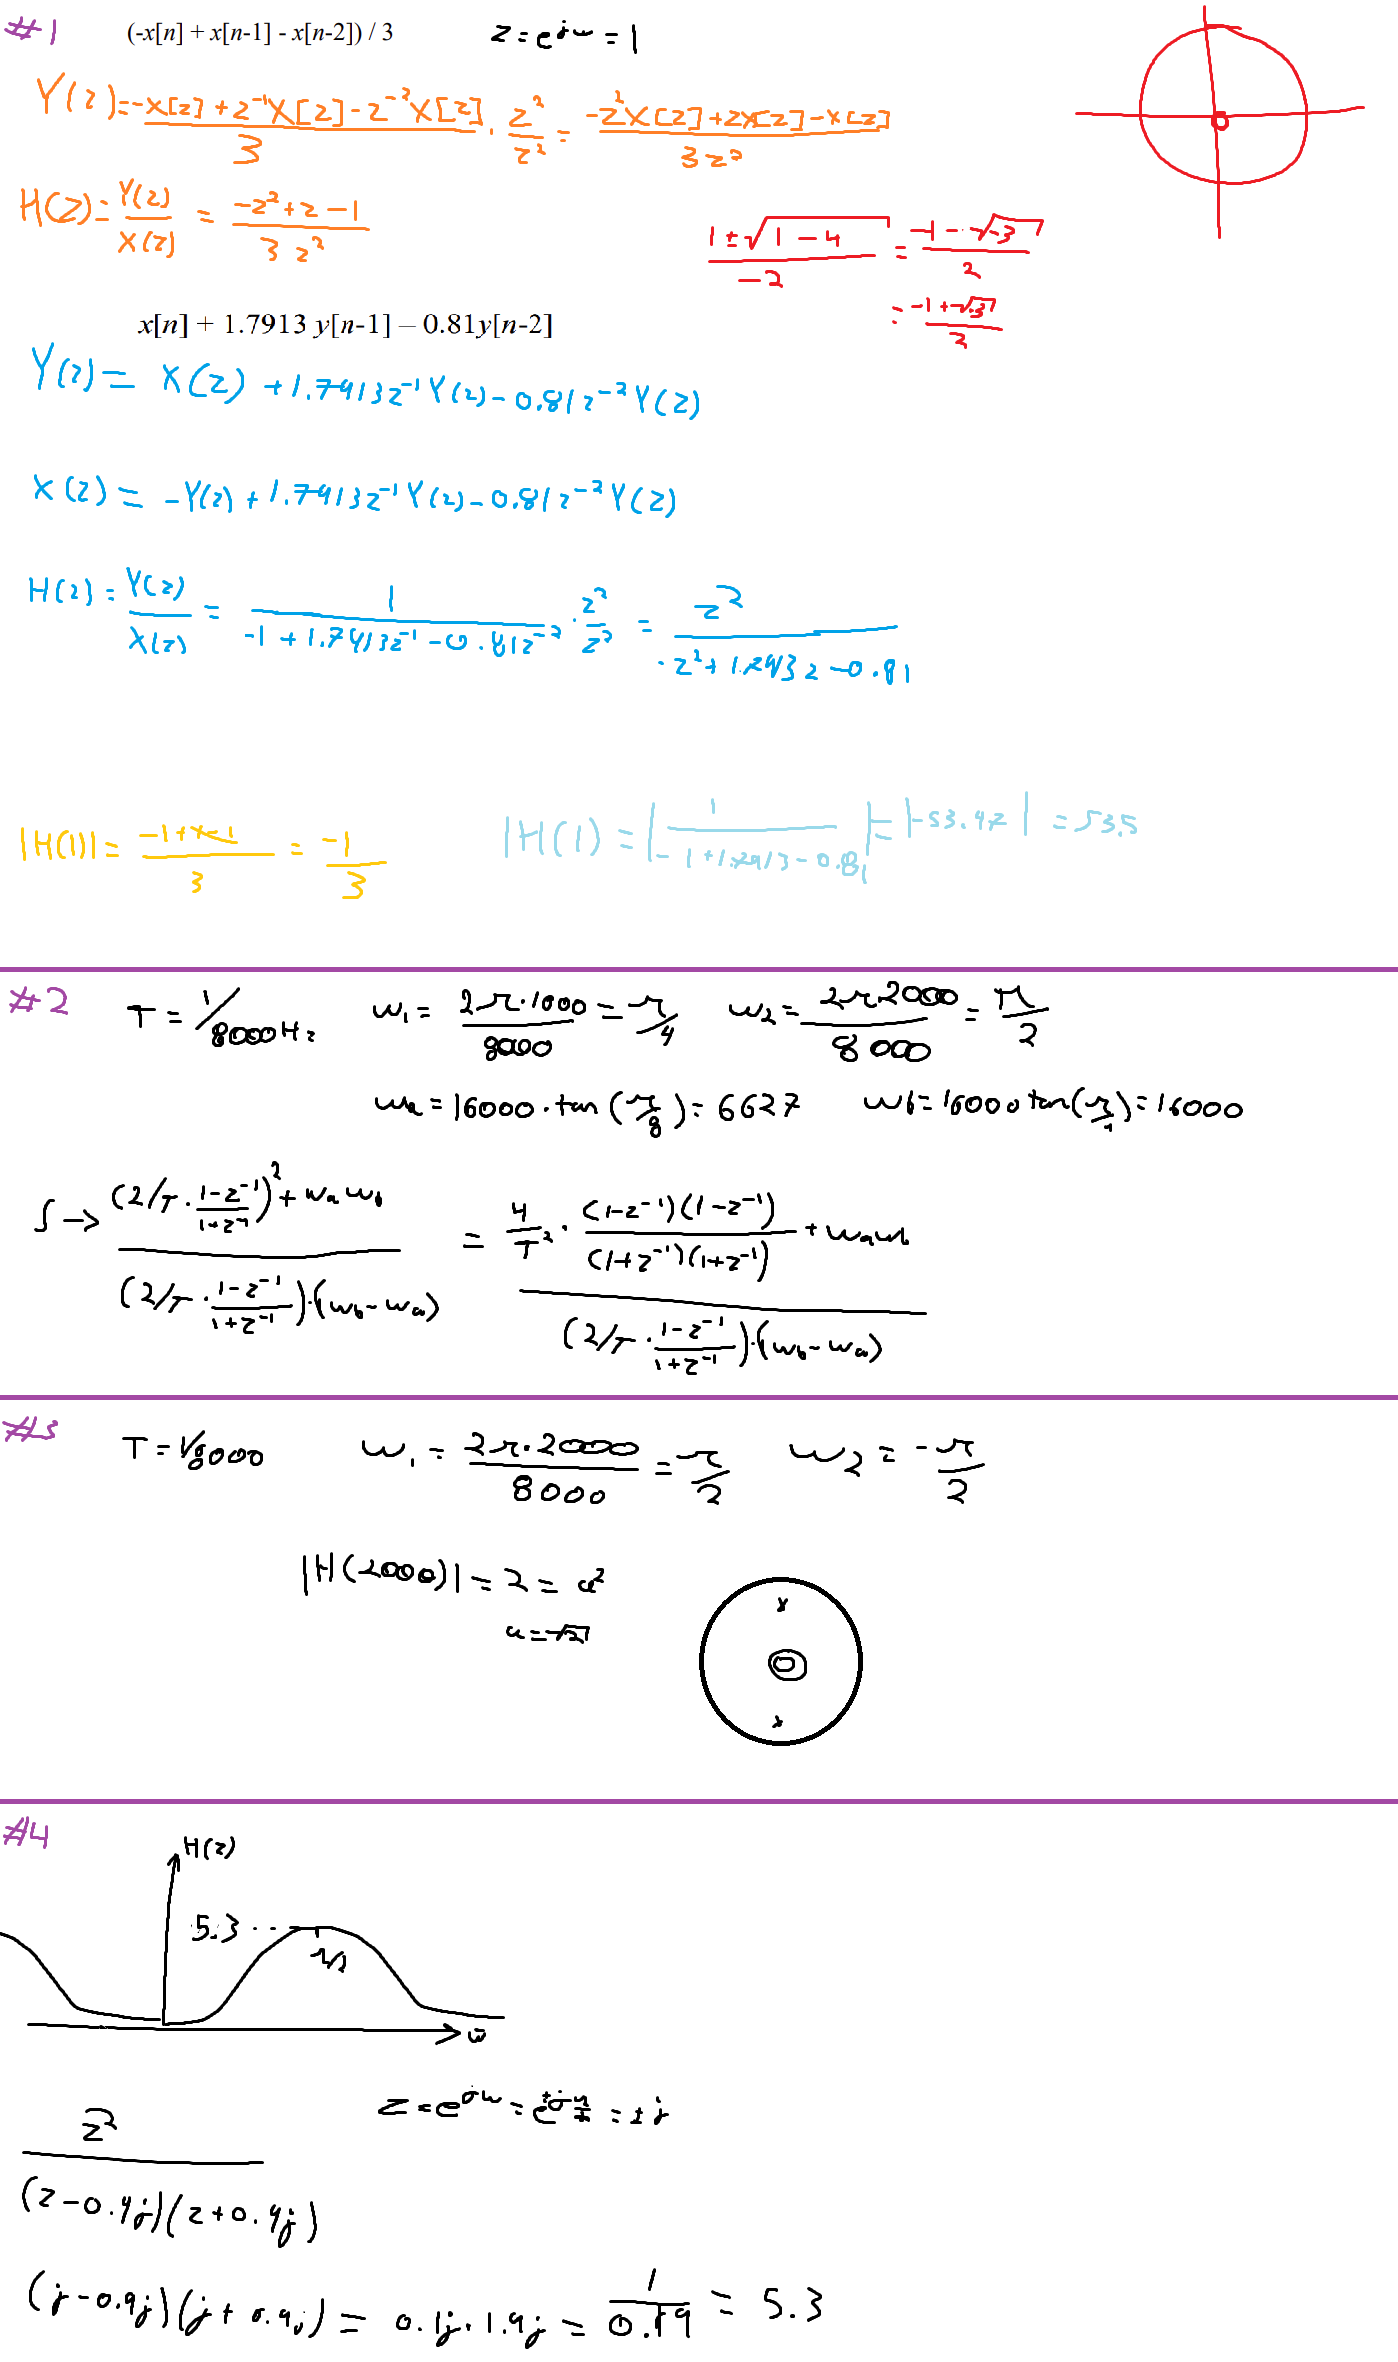 #1 (-x[n] + x[n-1] - x[n-2]) / 3 z = e^jω = 1
Y(z) = (-X[z] + z^-1 X[z] - z^-2 X[z]) / 3 · z^2/z^2 = (-z^2 X[z] + zX[z] - X[z]) / 3z^2
H(z) = Y(z)/X(z) = (-z^2 + z - 1) / 3z^2
(1 ± √(1 - 4)) / -2 = (-1 - √-3) / 2
= (-1 + √-3) / 2
x[n] + 1.7913 y[n-1] – 0.81y[n-2]
Y(z) = X(z) + 1.7913z^-1 Y(z) - 0.81z^-2 Y(z)
X(z) = -Y(z) + 1.7913z^-1 Y(z) - 0.81z^-2 Y(z)
H(z) = Y(z)/X(z) = 1 / (-1 + 1.7913z^-1 - 0.81z^-2) · z^2/z^2 = z^2 / (-z^2 + 1.7913z - 0.81)
|H(1)| = (-1 + 1 - 1) / 3 = -1/3
|H(1) = |1 / (-1 + 1.7913 - 0.81)| = |-53.47| = 53.5
#2 T = 1/8000Hz ω1 = 2π·1000/8000 = π/4 ω2 = 2π2000/8000 = π/2
ωa = 16000·tan(π/8) = 6627 ωb = 16000 tan(π/4) = 16000
S → ((2/T · (1-z^-1)/(1+z^-1))^2 + ωaωb) / ((2/T · (1-z^-1)/(1+z^-1))·(ωb-ωa)) = (4/T^2 · (1-z^-1)(1-z^-1)/(1+z^-1)(1+z^-1) + ωaωb) / ((2/T · (1-z^-1)/(1+z^-1))·(ωb-ωa))
#3 T = 1/8000 ω1 = 2π·2000/8000 = π/2 ω2 = -π/2
|H(2000)| = 2 = a^2
a = √2
#4
H(z)
5.3
π/2
ω
z^2 / (z - 0.9j)(z + 0.9j)
z = e^jω = e^±jπ/2 = ±j
(j - 0.9j)(j + 0.9j) = 0.1j · 1.9j = 1/0.19 = 5.3